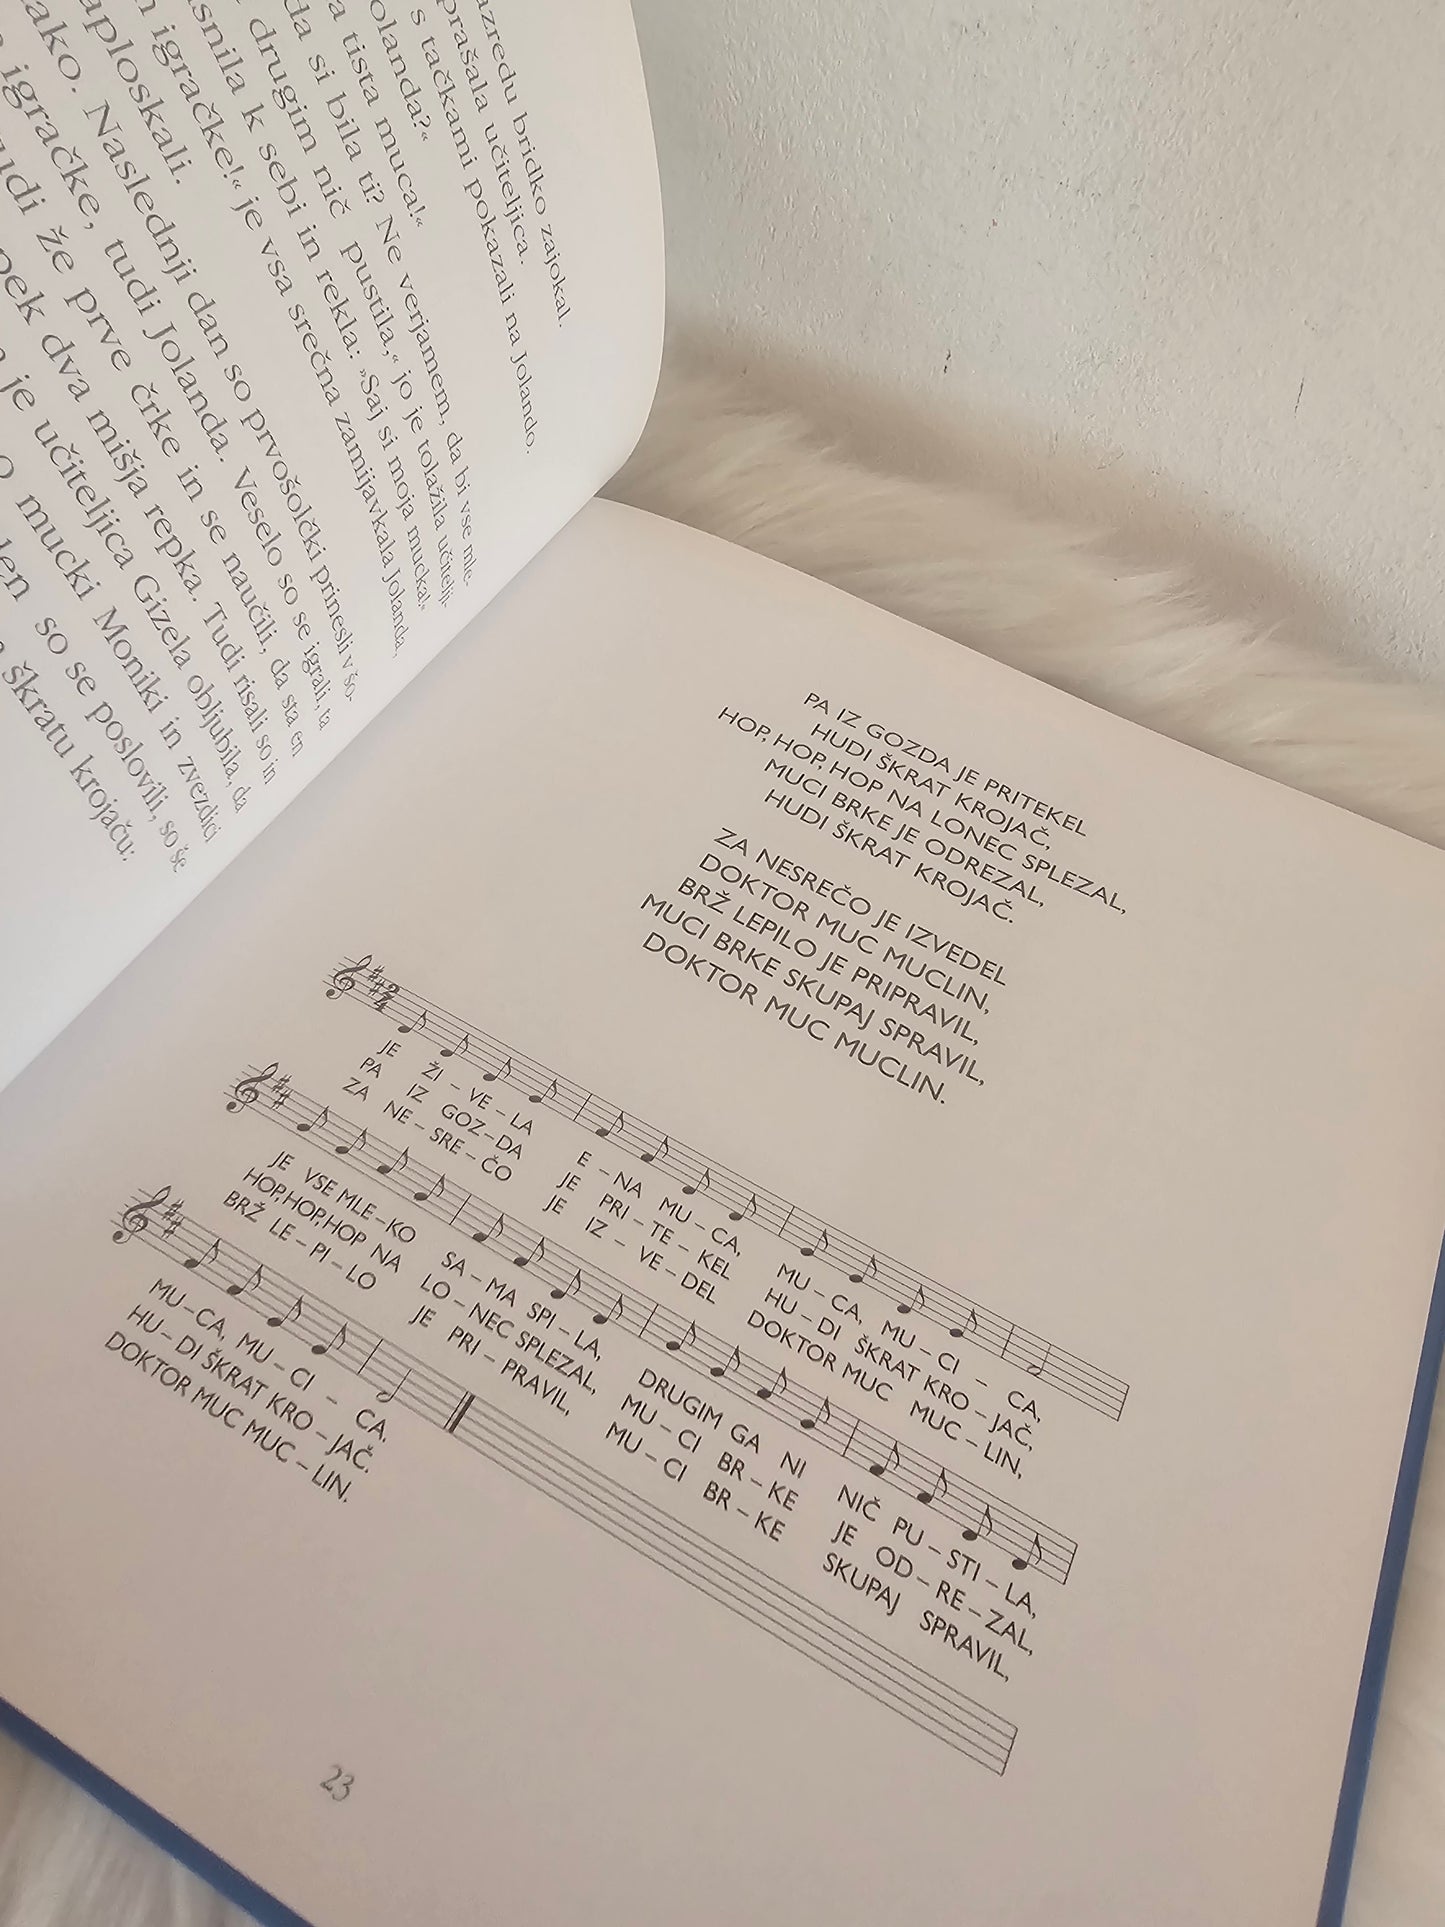 azredu bridko zajokal.
prašala učiteljica.
s tačkami pokazali na Jolando.
olanda?«
a tista muca!«
da si bila ti? Ne verjamem, da bi vse mle-
drugim nič pustila,« jo je tolažila učitelji-
snila k sebi in rekla: »Saj si moja mucka!«
igračke!« je vsa srečna zamijavkala Jolanda,
aploskali.
ako. Naslednji dan so prvošolčki prinesli v šo-
igračke, tudi Jolanda. Veselo so se igrali, ta
udi že prve črke in se naučili, da sta en
pek dva mišja repka. Tudi risali so in
je učiteljica Gizela obljubila, da
o mucki Moniki in zvezdici
so se poslovili, so še
škratu krojaču:
PA IZ GOZDA JE PRITEKEL
HUDI ŠKRAT KROJAČ,
HOP, HOP, HOP NA LONEC SPLEZAL,
MUCI BRKE JE ODREZAL,
HUDI ŠKRAT KROJAČ.
ZA NESREČO JE IZVEDEL
DOKTOR MUC MUCLIN,
BRŽ LEPILO JE PRIPRAVIL,
MUCI BRKE SKUPAJ SPRAVIL,
DOKTOR MUC MUCLIN.
JE ŽI – VE – LA E – NA MU – CA, MU – CA, MU – CI – CA,
PA IZ GOZ – DA JE PRI – TE – KEL HU – DI ŠKRAT KRO – JAČ,
ZA NE – SRE – ČO JE IZ – VE – DEL DOKTOR MUC MUC – LIN,
JE VSE MLE – KO SA – MA SPI – LA, DRUGIM GA NI NIČ PU – STI – LA,
HOP, HOP, HOP NA LO – NEC SPLEZAL, MU – CI BR – KE JE OD – RE – ZAL,
BRŽ LE – PI – LO JE PRI – PRAVIL, MU – CI BR – KE SKUPAJ SPRAVIL,
MU – CA, MU – CI – CA.
HU – DI ŠKRAT KRO – JAČ.
DOKTOR MUC MUC – LIN.
23